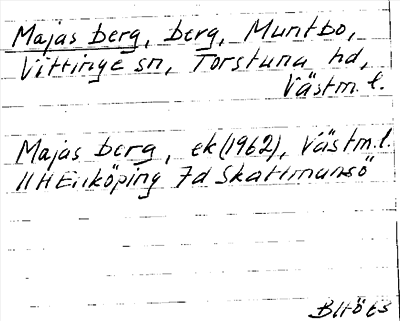 Majas berg, berg, Muntbo,
Vittinge sn, Torstuna hd,
Västm. l.
Majas berg, ek (1962), Västm.l.
11H Enköping 7d Skattmansö